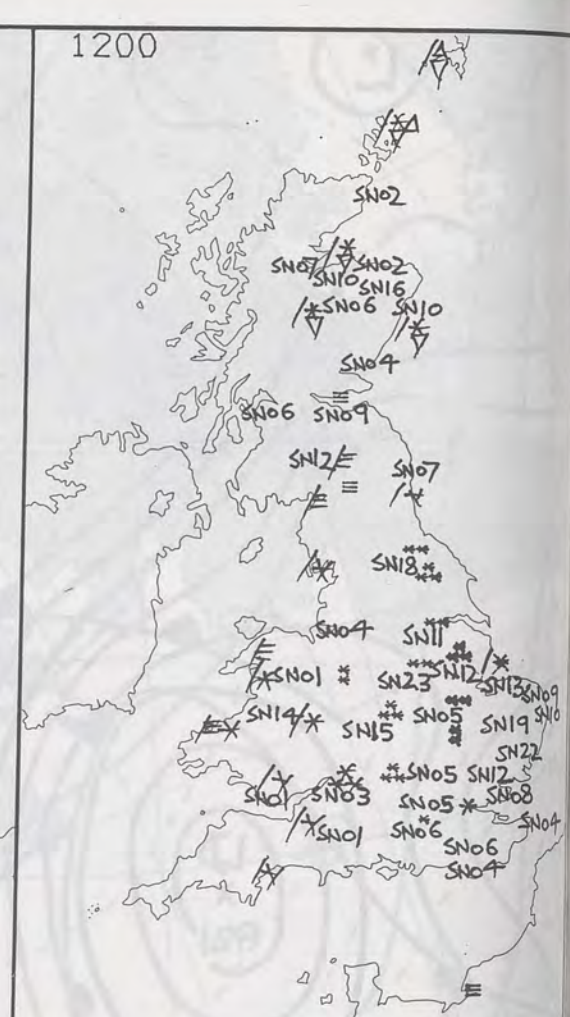 1200
SN02
SN07 SN02
SN10 SN16
SN06 SN10
SN04
SN06 SN09
SN12
SN07
SN18
SN04 SN11
SN01 SN23 SN12 SN13 SN09
SN14 SN15 SN05 SN19 SN10
SN22
SN05 SN12
SN01 SN03 SN05 SN08
SN01 SN06 SN04
SN06
SN04